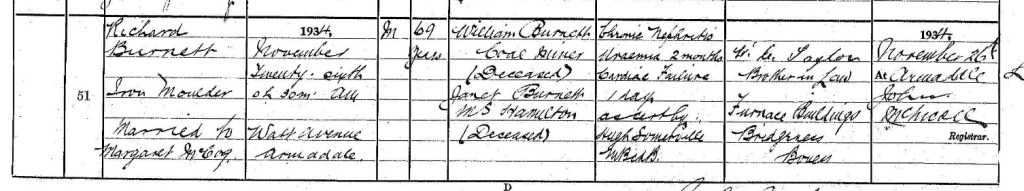 51
Richard
Burnett
Iron Moulder
Married to
Margaret McCoy
1934,
November
Twenty-sixth
0h 30m AM
Watt Avenue
Armadale.
M
69
years
William Burnett
Coal Miner
(Deceased)
Janet Burnett
MS Hamilton
(Deceased)
Chronic Nephritis
Uraemia 2 months
Cardiac Failure
1 day
as cert by
Hugh Somerville
M.B.Ch.B.
Taylor
Brother in Law
Furnace Buildings
Bridgness
Boness
1934,
November 26th
At Armadale
John
McNicoll
Registrar.
D